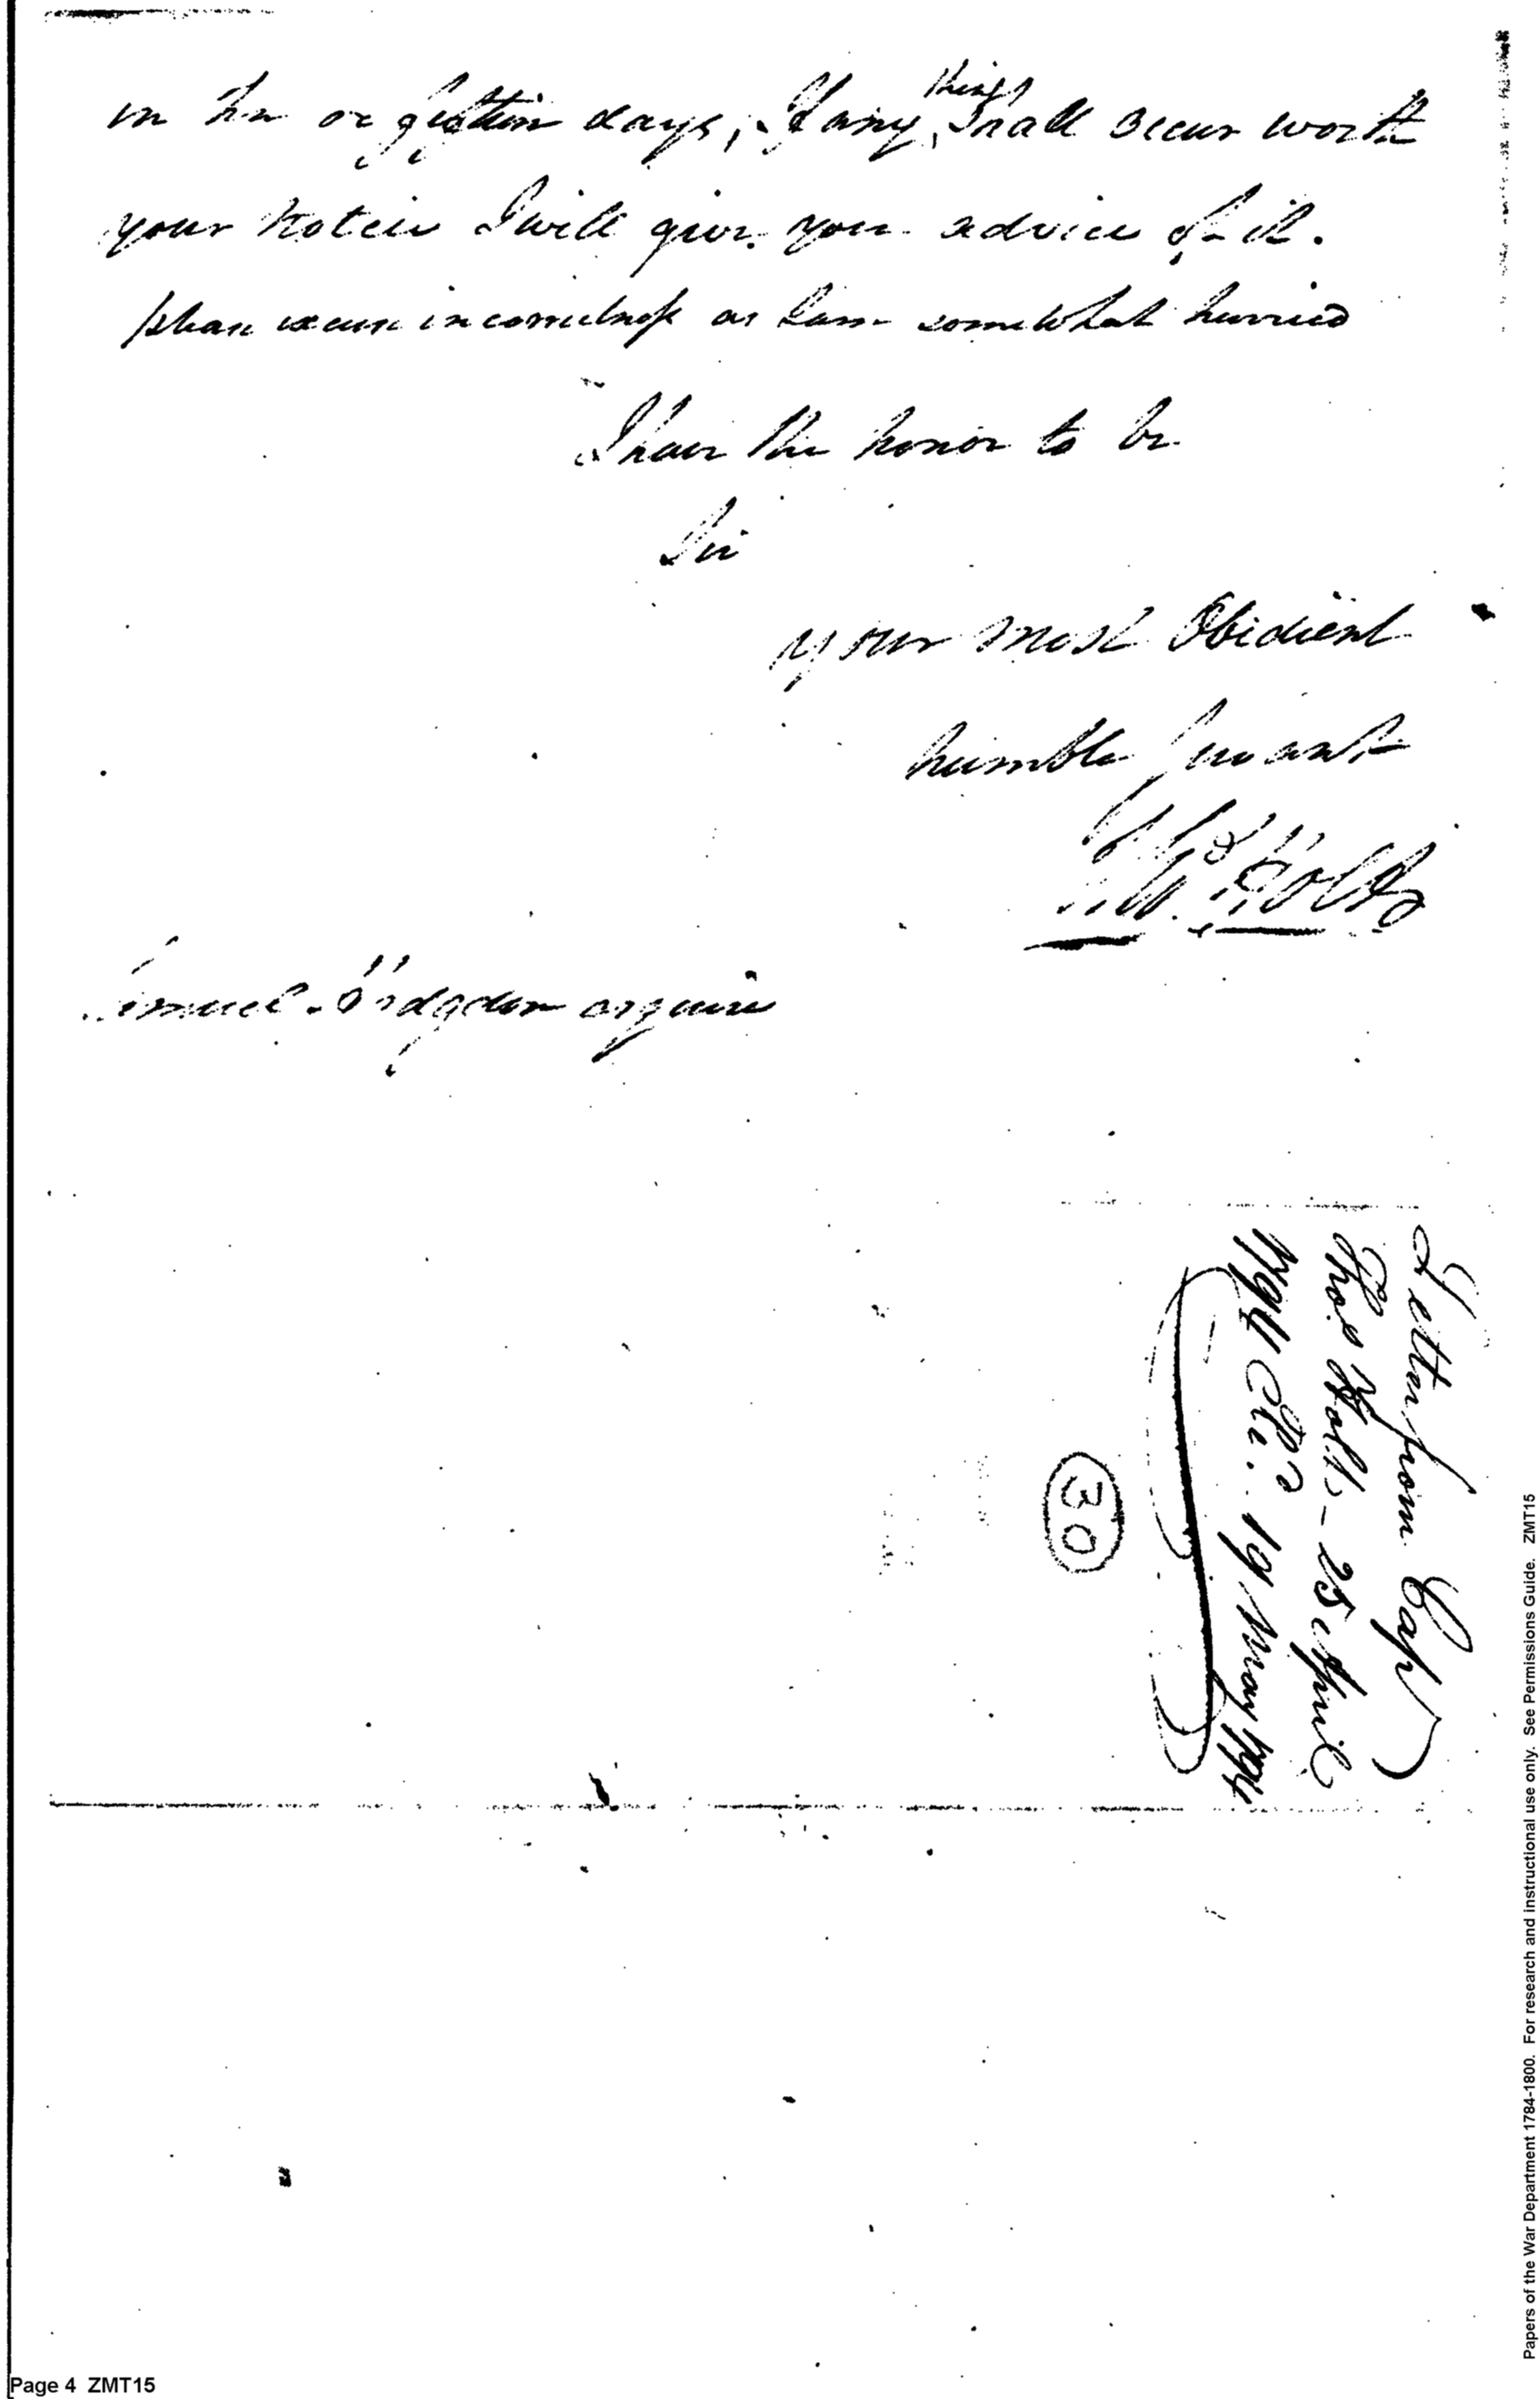 in ten or fifteen days, If any thing shall occur worth
your notice I will give you advice of it.
please excuse incorrectness as I am somewhat hurried
I have the honor to be
Sir
your most Obidient
humble servant
Holt
Samuel Hodgdon esquire
Letter from Capt
Thos Holt - 25 April
1794 19 May 1794
30
Papers of the War Department 1784-1800. For research and instructional use only. See Permissions Guide. ZMT15
Page 4 ZMT15